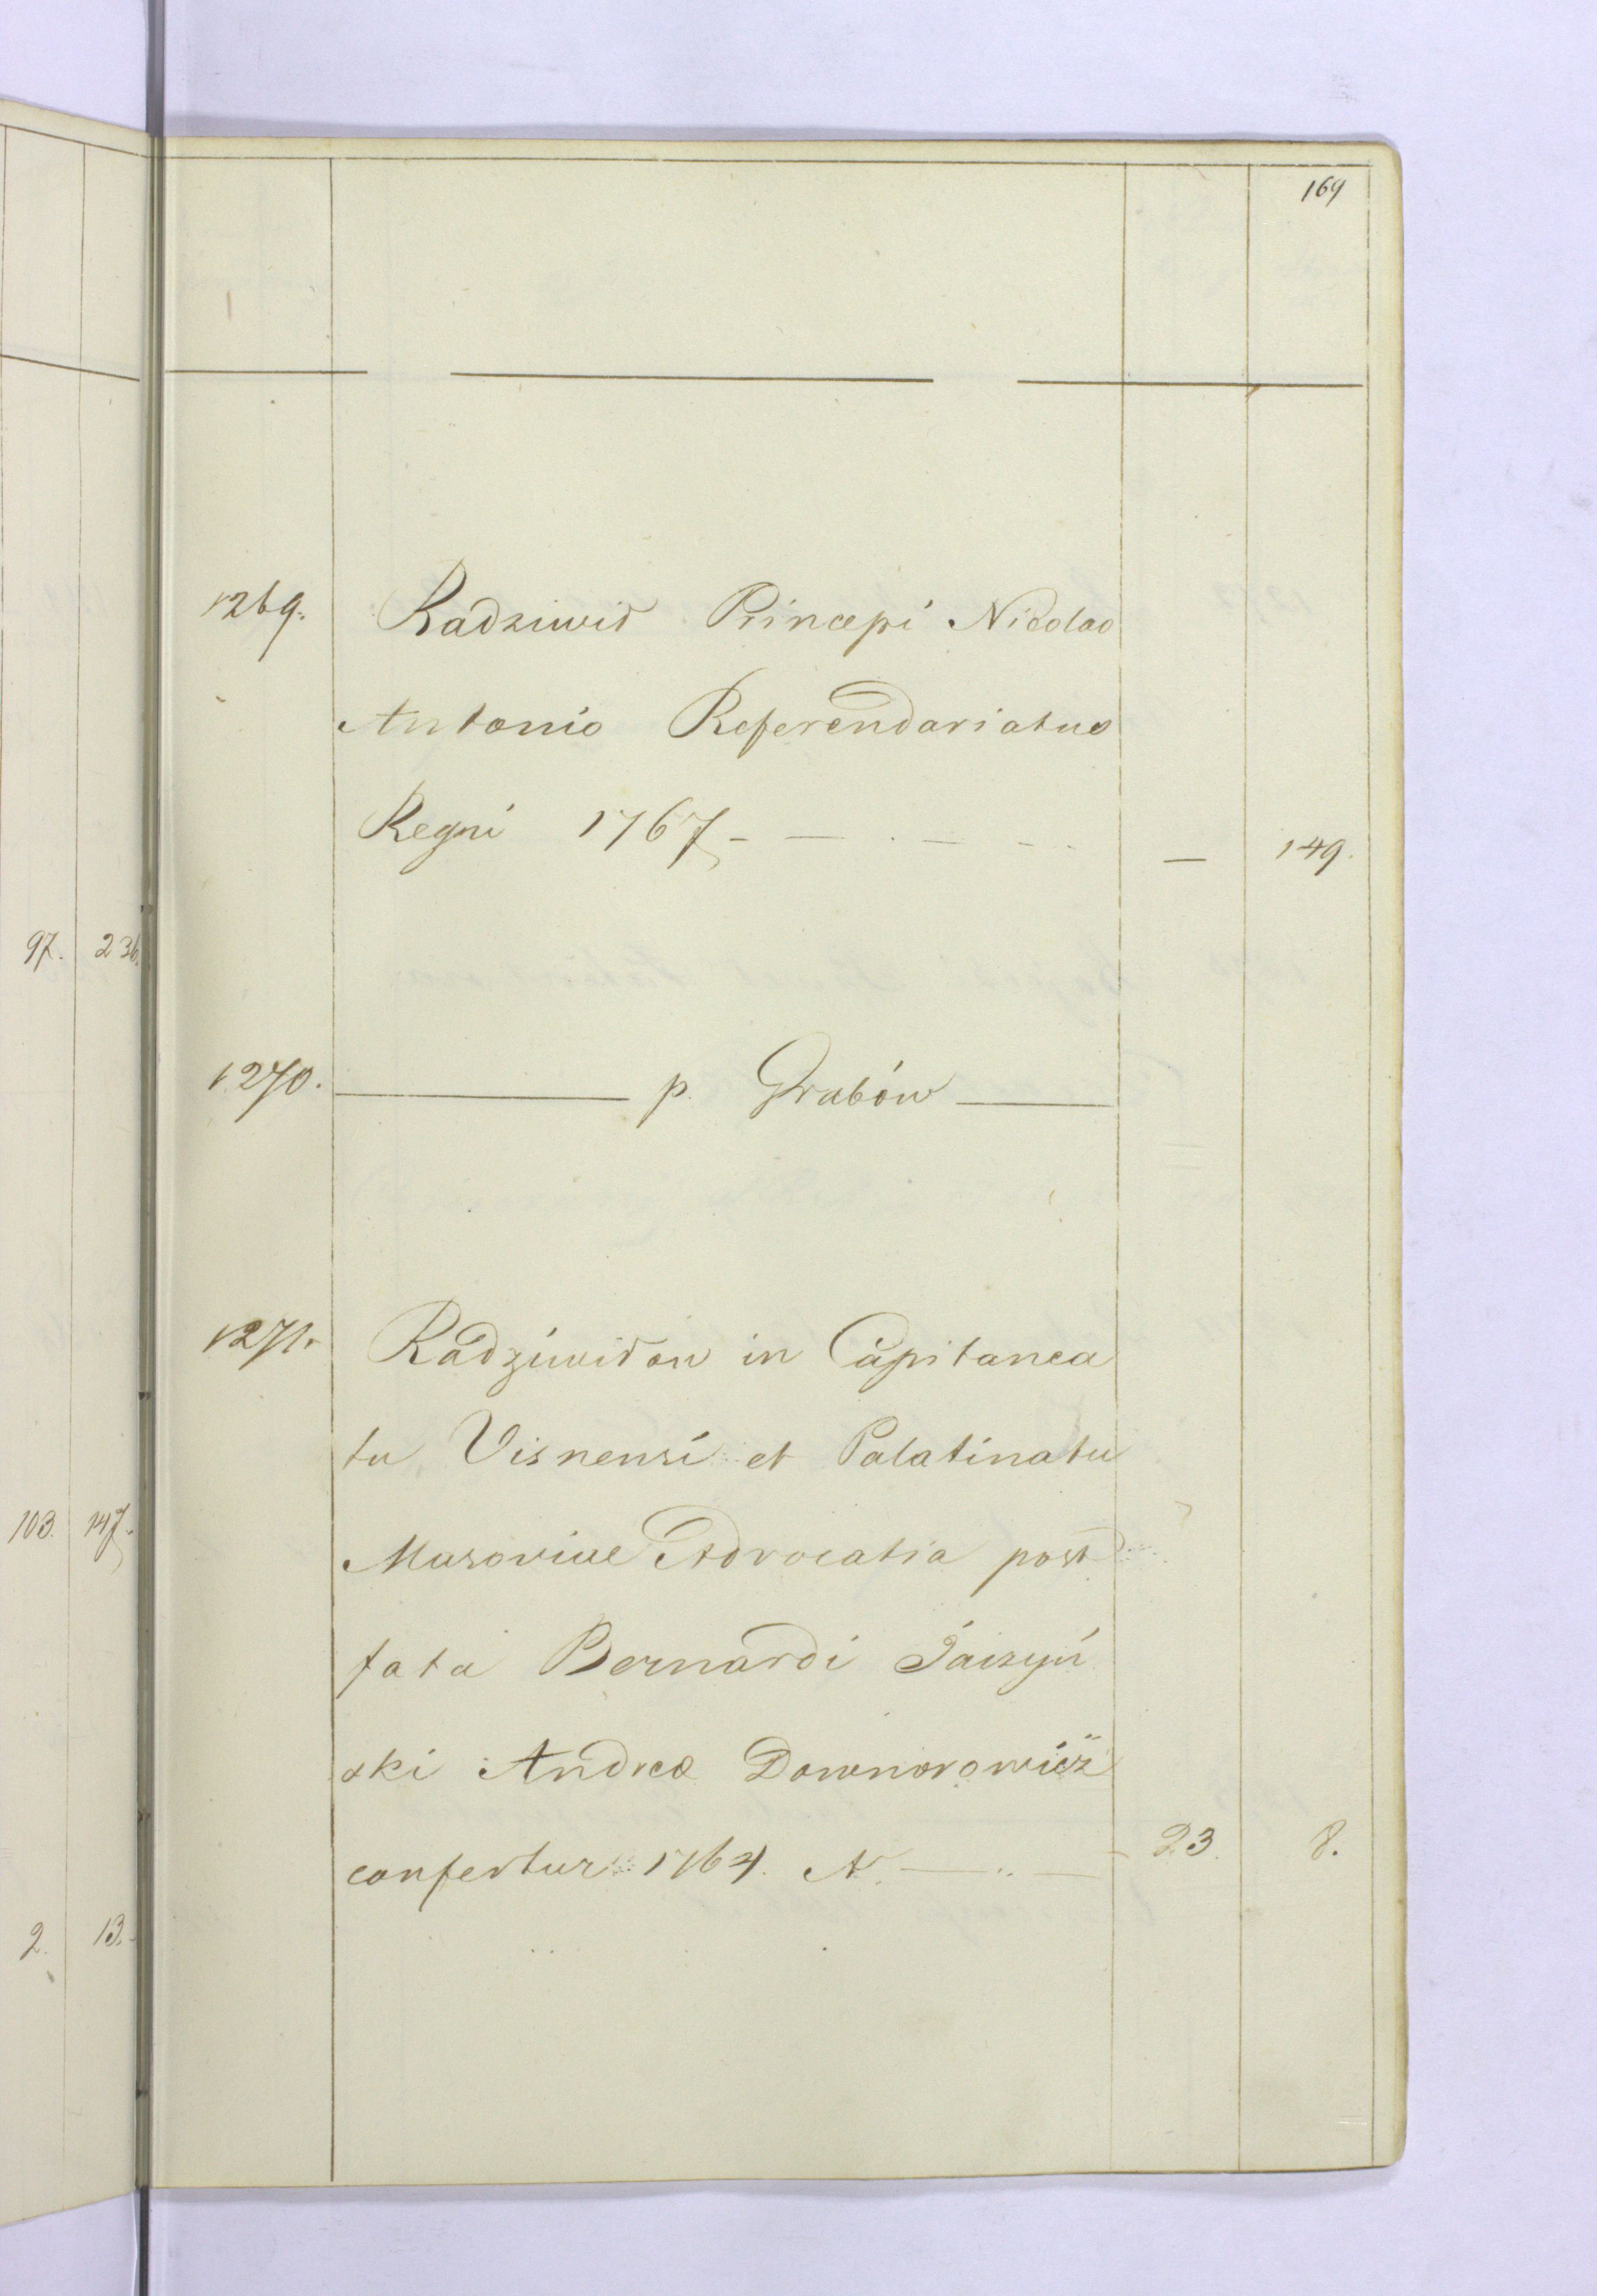 169
1269. Radziwił Principi Nicolao
Antonio Referendariatus
Regni 1767 - — . — - - — 149.
97. 236.
1270. — p. Grabów —
1271. Radziwiłow in Capitanea
tu Visnensi et Palatinatu
103. 147.
Masoviae Advocatia post
fata Bernardi
ski Andreae Downorowicz
confertur 1764. N. — .. — 23. 8.
2. 13.